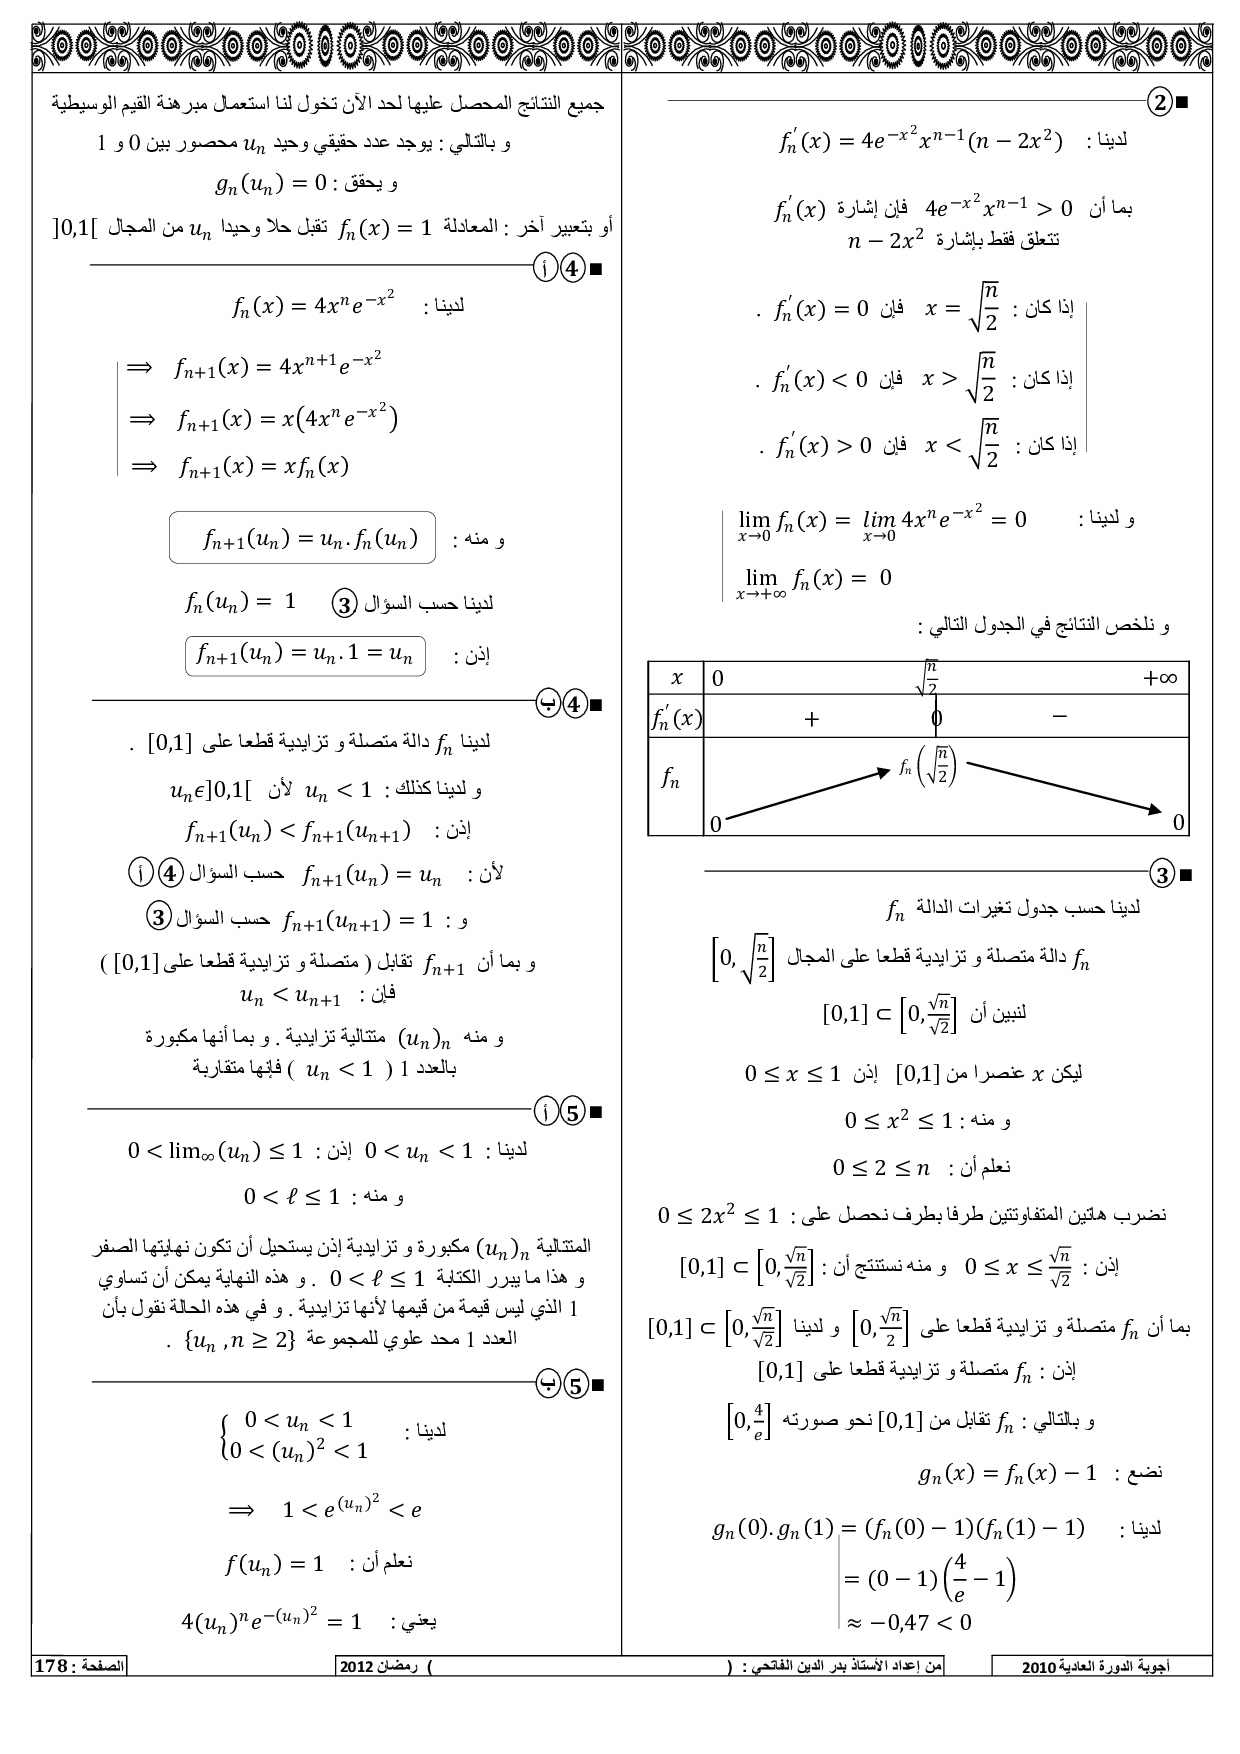 ■②
لدينا : f_n′(x) = 4e^{−x²}x^{n−1}(n − 2x²)
بما أن 4e^{−x²}x^{n−1} > 0 فإن إشارة f_n′(x)
تتعلق فقط بإشارة n − 2x²
إذا كان : x = √(n/2) فإن f_n′(x) = 0 .
إذا كان : x > √(n/2) فإن f_n′(x) < 0 .
إذا كان : x < √(n/2) فإن f_n′(x) > 0 .
و لدينا : lim_{x→0} f_n(x) = lim_{x→0} 4x^n e^{−x²} = 0
lim_{x→+∞} f_n(x) = 0
و نلخص النتائج في الجدول التالي :
x 0 √(n/2) +∞
f_n′(x) + 0 −
f_n 0 f_n(√(n/2)) 0
■③
لدينا حسب جدول تغيرات الدالة f_n
f_n دالة متصلة و تزايدية قطعا على المجال [0, √(n/2)]
لنبين أن [0,1] ⊂ [0, √n/√2]
ليكن x عنصرا من [0,1] إذن 0 ≤ x ≤ 1
و منه : 0 ≤ x² ≤ 1
نعلم أن : 0 ≤ 2 ≤ n
نضرب هاتين المتفاوتتين طرفا بطرف نحصل على : 0 ≤ 2x² ≤ 1
إذن : 0 ≤ x ≤ √n/√2 و منه نستنتج أن : [0,1] ⊂ [0, √n/√2]
بما أن f_n متصلة و تزايدية قطعا على [0, √n/2] و لدينا [0,1] ⊂ [0, √n/√2]
إذن : f_n متصلة و تزايدية قطعا على [0,1]
و بالتالي : f_n تقابل من [0,1] نحو صورته [0, 4/e]
نضع : g_n(x) = f_n(x) − 1
لدينا : g_n(0). g_n(1) = (f_n(0) − 1)(f_n(1) − 1)
= (0 − 1)(4/e − 1)
≈ −0,47 < 0
جميع النتائج المحصل عليها لحد الآن تخول لنا استعمال مبرهنة القيم الوسيطية
و بالتالي : يوجد عدد حقيقي وحيد u_n محصور بين 0 و 1
و يحقق : g_n(u_n) = 0
أو بتعبير آخر : المعادلة f_n(x) = 1 تقبل حلا وحيدا u_n من المجال ]0,1[
■④أ
لدينا : f_n(x) = 4x^n e^{−x²}
⟹ f_{n+1}(x) = 4x^{n+1}e^{−x²}
⟹ f_{n+1}(x) = x(4x^n e^{−x²})
⟹ f_{n+1}(x) = xf_n(x)
و منه : f_{n+1}(u_n) = u_n. f_n(u_n)
لدينا حسب السؤال ③ f_n(u_n) = 1
إذن : f_{n+1}(u_n) = u_n. 1 = u_n
■④ب
لدينا f_n دالة متصلة و تزايدية قطعا على [0,1] .
و لدينا كذلك : u_n < 1 لأن u_n ϵ]0,1[
إذن : f_{n+1}(u_n) < f_{n+1}(u_{n+1})
لأن : f_{n+1}(u_n) = u_n حسب السؤال ④أ
و : f_{n+1}(u_{n+1}) = 1 حسب السؤال ③
و بما أن f_{n+1} تقابل ( متصلة و تزايدية قطعا على [0,1] )
فإن : u_n < u_{n+1}
و منه (u_n)_n متتالية تزايدية . و بما أنها مكبورة
بالعدد 1 ( u_n < 1 ) فإنها متقاربة
■⑤أ
لدينا : 0 < u_n < 1 إذن : 0 < lim_∞(u_n) ≤ 1
و منه : 0 < ℓ ≤ 1
المتتالية (u_n)_n مكبورة و تزايدية إذن يستحيل أن تكون نهايتها الصفر
و هذا ما يبرر الكتابة 0 < ℓ ≤ 1 . و هذه النهاية يمكن أن تساوي
1 الذي ليس قيمة من قيمها لأنها تزايدية . و في هذه الحالة نقول بأن
العدد 1 محد علوي للمجموعة {u_n , n ≥ 2} .
■⑤ب
لدينا : { 0 < u_n < 1
0 < (u_n)² < 1
⟹ 1 < e^{(u_n)²} < e
نعلم أن : f(u_n) = 1
يعني : 4(u_n)^n e^{−(u_n)²} = 1
أجوبة الدورة العادية 2010
من إعداد الأستاذ بدر الدين الفاتحي : ( ) رمضان 2012
الصفحة : 178